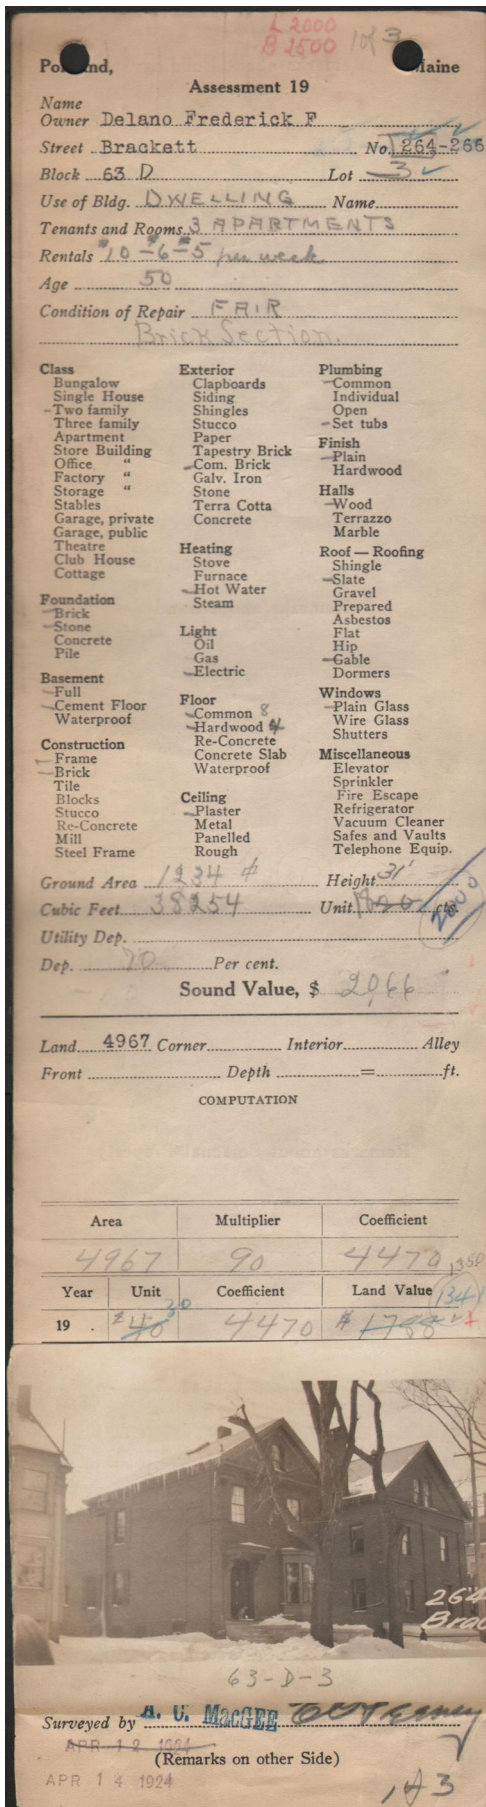 L 2000
B 2500 1 of 3
Portland, Maine
Assessment 19
Name
Owner Delano Frederick F
Street Brackett No. 264-266
Block 63 D Lot 3
Use of Bldg. DWELLING Name
Tenants and Rooms 3 APARTMENTS
Rentals $10-$6-$5 per week
Age 50
Condition of Repair FAIR
Brick Section.
Class
Bungalow
Single House
Two family
Three family
Apartment
Store Building
Office "
Factory "
Storage "
Stables
Garage, private
Garage, public
Theatre
Club House
Cottage
Foundation
Brick
Stone
Concrete
Pile
Basement
Full
Cement Floor
Waterproof
Construction
Frame
Brick
Tile
Blocks
Stucco
Re-Concrete
Mill
Steel Frame
Exterior
Clapboards
Siding
Shingles
Stucco
Paper
Tapestry Brick
Com. Brick
Galv. Iron
Stone
Terra Cotta
Concrete
Heating
Stove
Furnace
Hot Water
Steam
Light
Oil
Gas
Electric
Floor
Common 8
Hardwood 4
Re-Concrete
Concrete Slab
Waterproof
Ceiling
Plaster
Metal
Panelled
Rough
Plumbing
Common
Individual
Open
Set tubs
Finish
Plain
Hardwood
Halls
Wood
Terrazzo
Marble
Roof — Roofing
Shingle
Slate
Gravel
Prepared
Asbestos
Flat
Hip
Gable
Dormers
Windows
Plain Glass
Wire Glass
Shutters
Miscellaneous
Elevator
Sprinkler
Fire Escape
Refrigerator
Vacuum Cleaner
Safes and Vaults
Telephone Equip.
Ground Area 1234 Height 31'
Cubic Feet 38254 Unit cts. 2000
Utility Dep.
Dep. 70 Per cent.
Sound Value, $ 2066
Land 4967 Corner Interior Alley
Front Depth = ft.
COMPUTATION
Area Multiplier Coefficient
4967 90 4470 1350
Year Unit Coefficient Land Value 1341
30
19 . $40 4470 $1788
264
Brac
63-D-3
Surveyed by A. C. MacGEE
APR 12 1924
(Remarks on other Side)
APR 14 1924
1 of 3